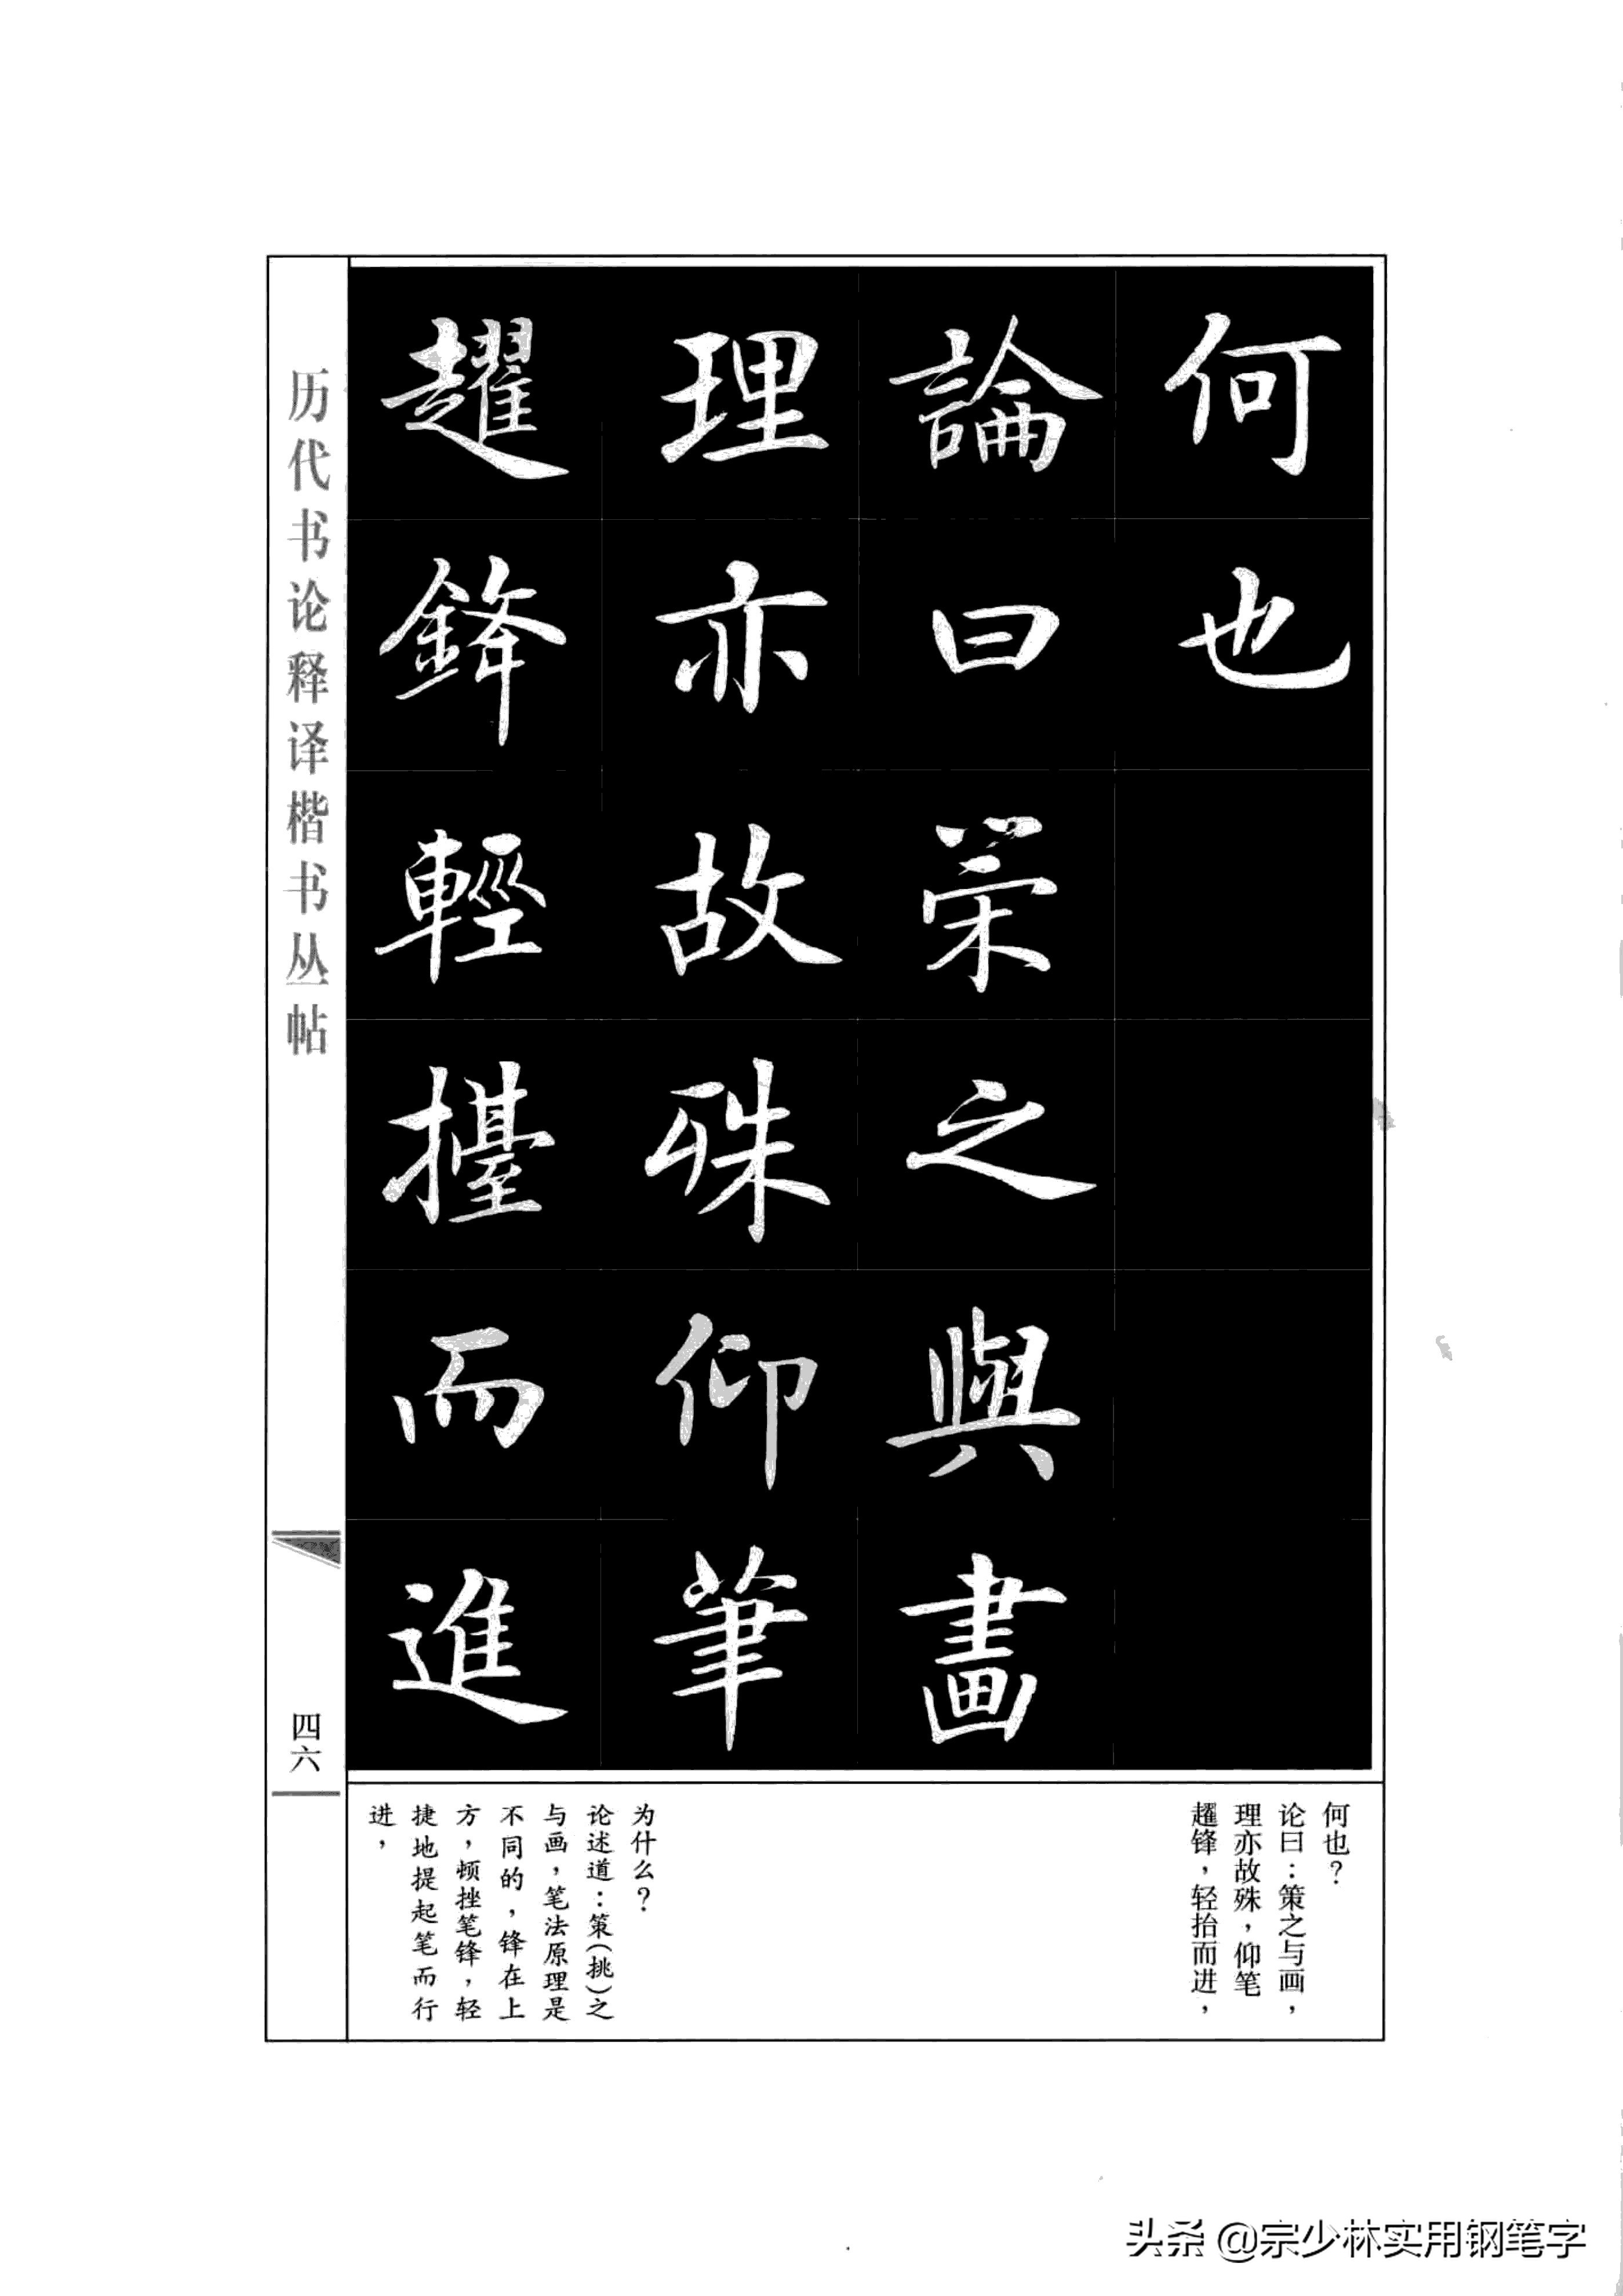 何也
論曰策之與畫
理亦故殊仰筆
趯鋒輕擡而進
何也？
论曰：策之与画，
理亦故殊，仰笔
趯锋，轻抬而进，
为什么？
论述道：策（挑）之
与画，笔法原理是
不同的，锋在上
方，顿挫笔锋，轻
捷地提起笔而行
进，
历代书论释译楷书丛帖
四六
头条 @宗少林实用钢笔字